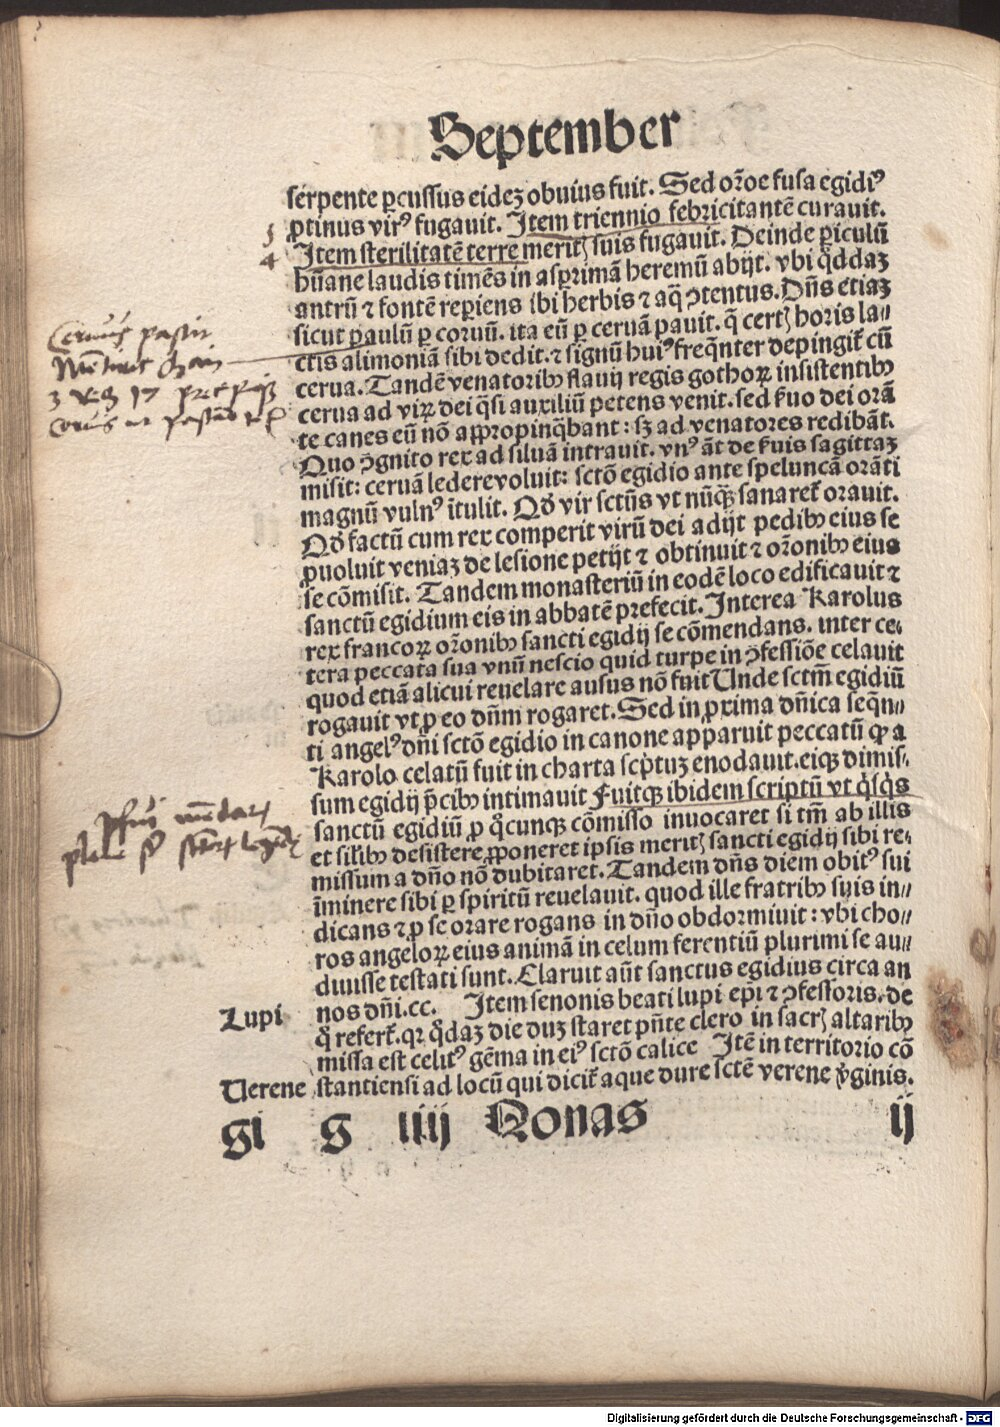 September
serpente ꝑcussus eidez obuius fuit. Sed or̄oe fusa egidiꝰ
ꝓtinus virꝰ fugauit. Item triennio febricitantē curauit.
3
4
Item sterilitatē terre meritꝭ suis fugauit. Deinde ꝑiculū
hūane laudis timēs in asꝑrimā heremū abijt. vbi q̄ddaz
antrū ⁊ fontē reꝑiens ibi herbis ⁊ aq̄ ꝯtentus. Dn̄s etiaz
sicut paulū ꝑ coruū. ita eū ꝑ ceruā pauit. q̄ certꝭ horis la-
ctis alimoniā sibi dedit. ⁊ signū huiꝰ freq̄nter depingit᷑ cū
cerua. Tandē venatoribꝫ flauij regis gothoꝝ insistentibꝫ
cerua ad viꝝ dei q̄si auxiliū petens venit. sed ẜuo dei orā
te canes eū nō appropinq̄bant: sꝫ ad venatores redibāt.
Quo ꝯgnito rex ad siluā intrauit. vnꝰ āt de ẜuis sagittaz
misit: ceruā ledere voluit: sctō egidio ante speluncā orāti
magnū vulnꝰ ītulit. Qd̓ vir sctūs vt nūqꝫ sanaret᷑ orauit.
Qd̓ factū cum rex comperit virū dei adijt pedibꝫ eius se
ꝓuoluit veniaz de lesione petijt ⁊ obtinuit ⁊ or̄onibꝫ eius
se cōmisit. Tandem monasteriū in eodē loco edificauit ⁊
sanctū egidium eis in abbatē prefecit. Interea Karolus
rex francoꝝ or̄onibꝫ sancti egidij se cōmendans. inter ce-
tera peccata sua vnū nescio quid turpe in ꝯfessiōe celauit
quod etiā alicui reuelare ausus nō fuit Unde sctm̄ egidiū
rogauit vt ꝓ eo dn̄m rogaret. Sed in ꝓxima dn̄ica seq̄n-
ti angelꝰ dn̄i sctō egidio in canone apparuit peccatū qd̓ a
Karolo celatū fuit in charta scp̄tuz enodauit. eiqꝫ dimis-
sum egidij p̄cibꝫ intimauit Fuitqꝫ ibidem scriptū vt q̇sq̇s
sanctū egidiū ꝓ q̊cunqꝫ cōmisso inuocaret si tm̄ ab illis
et silībꝫ desistere ꝓponeret ipsis meritꝭ sancti egidij sibi re-
missum a dn̄o nō dubitaret. Tandem dn̄s diem obitꝰ sui
īminere sibi ꝑ spiritū reuelauit. quod ille fratribꝫ suis in-
dicans ⁊ ꝓ se orare rogans in dn̄o obdormiuit: vbi cho-
ros angeloꝝ eius animā in celum ferentiū plurimi se au-
diuisse testati sunt. Claruit aūt sanctus egidius circa an
nos dn̄i.cc. Item senonis beati lupi ep̄i ⁊ ꝯfessoris. de
Lupi
q̊ refert᷑. qꝛ q̊daz die duz staret pn̄te clero in sacrꝭ altaribꝫ
missa est celitꝰ gēma in eiꝰ sctō calice Itē in territorio cō
Uerene
stantiensi ad locū qui dicit᷑ aque dure sctē verene v̓ginis.
gi g iiij Nonas ij
Digitalisierung gefördert durch die Deutsche Forschungsgemeinschaft - DFG